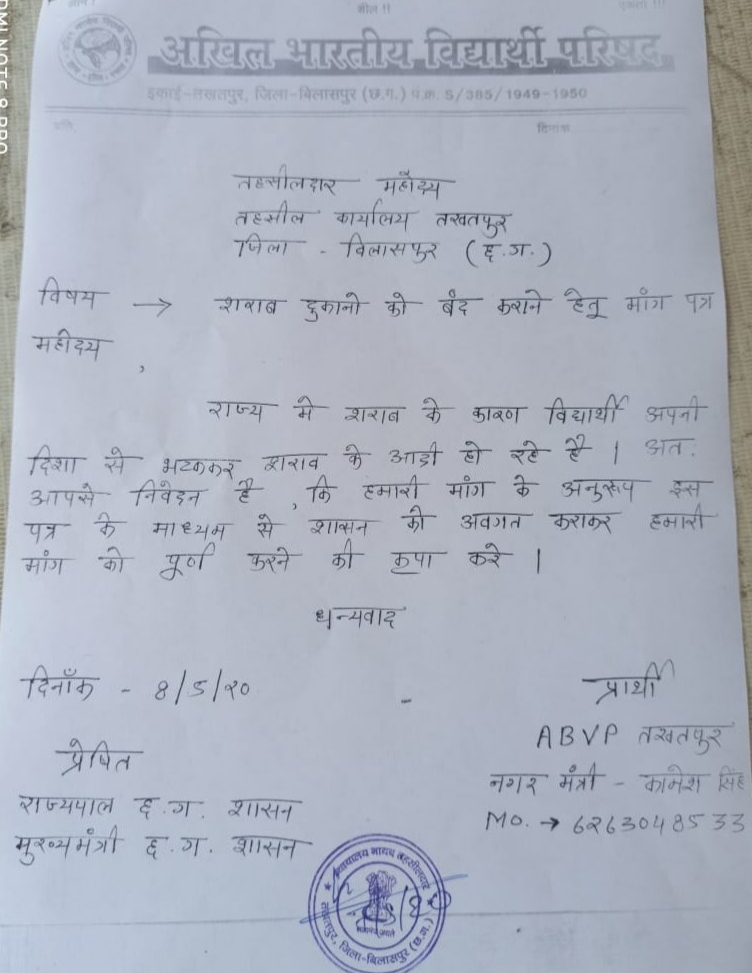 शील !!
एकता !!!
DMI NOTE 8 PRO
अखिल भारतीय विद्यार्थी परिषद
इकाई-तखतपुर, जिला-बिलासपुर (छ.ग.) प.क्र. S/385/1949-1950
प्रति, दिनांक
तहसीलदार महोदय
तहसील कार्यालय तखतपुर
जिला - बिलासपुर (छ.ग.)
विषय → शराब दुकानो को बंद कराने हेतू मांग पत्र
महोदय ,
राज्य मे शराब के कारण विद्यार्थी अपनी
दिशा से भटककर शराब के आदी हो रहे है । अत:
आपसे निवेदन है , कि हमारी मांग के अनुरूप इस
पत्र के माध्यम से शासन को अवगत कराकर हमारी
मांग को पूर्ण करने की कृपा करे ।
धन्यवाद
दिनाँक - 8/5/20 -
प्रार्थी
ABVP तखतपुर
नगर मंत्री - कामेश सिंह
Mo. → 6263048533
प्रेषित
राज्यपाल छ.ग. शासन
मुख्यमंत्री छ.ग. शासन
न्यायालय नायब तहसीलदार
तखतपुर, जिला-बिलासपुर (छ.ग.)